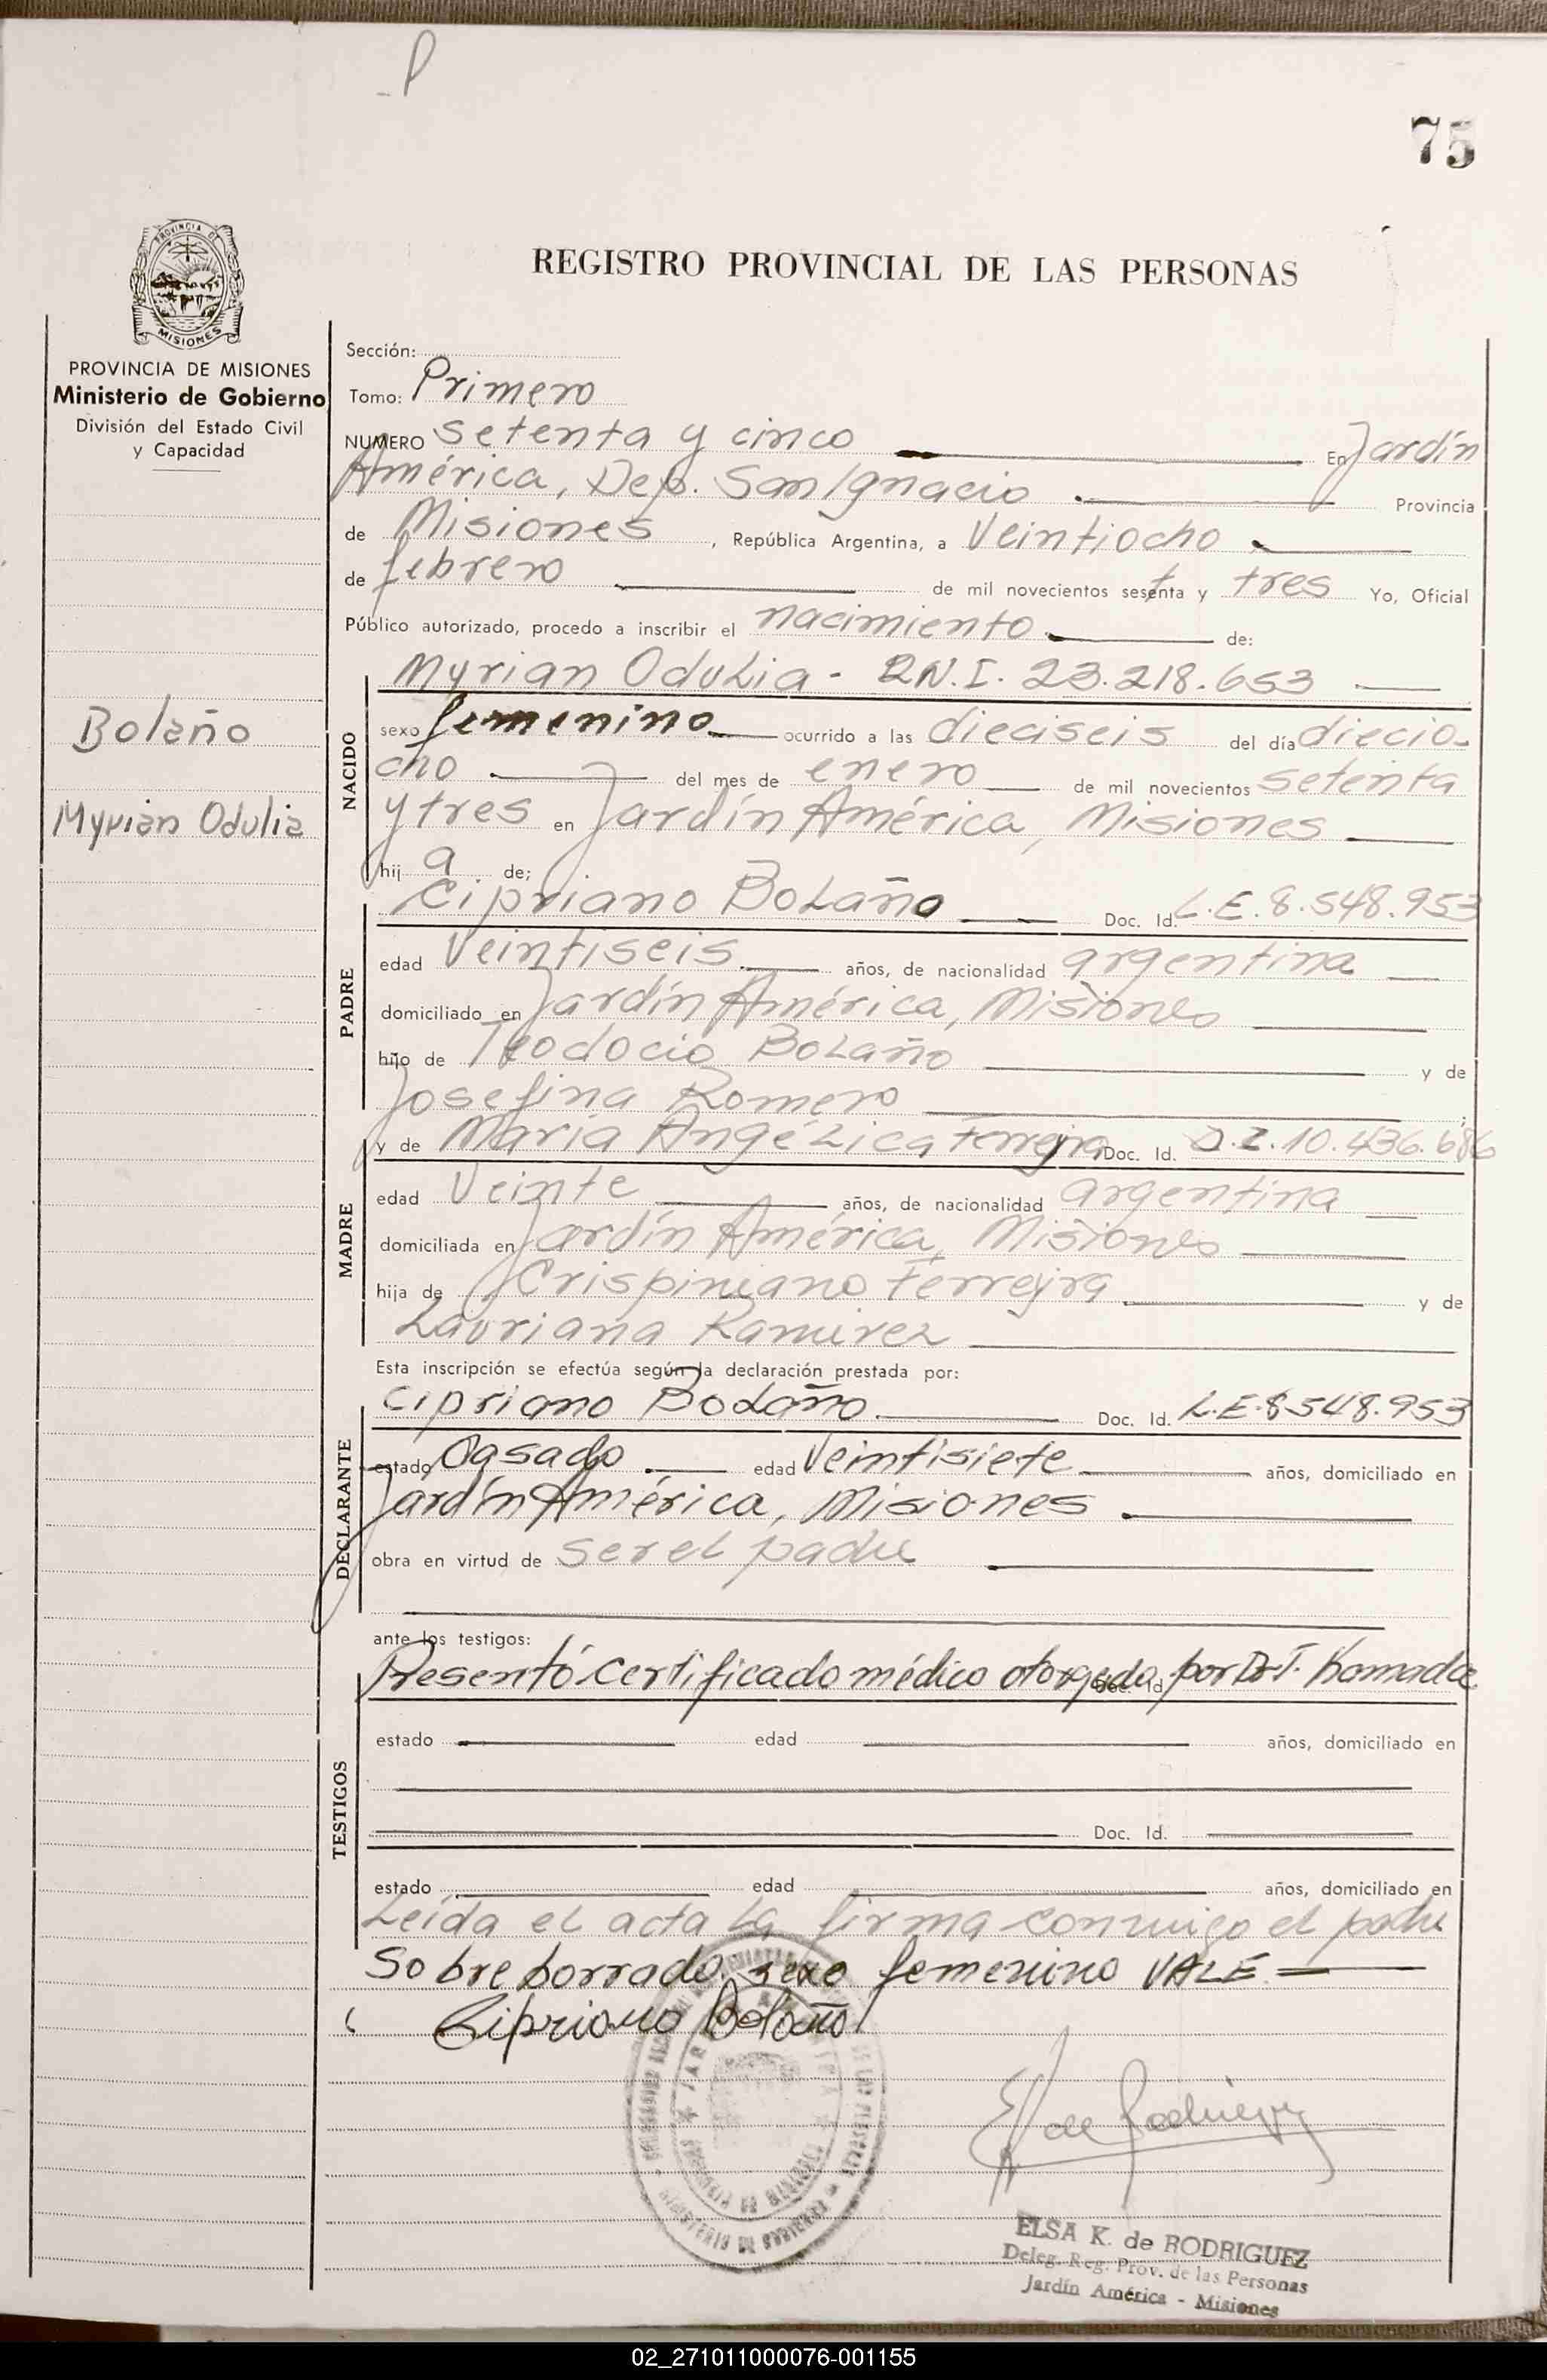 P
75
PROVINCIA DE
MISIONES
REGISTRO PROVINCIAL DE LAS PERSONAS
PROVINCIA DE MISIONES
Ministerio de Gobierno
División del Estado Civil
y Capacidad
Bolaño
Myrian Odulia
Sección:
Tomo: Primero
NUMERO setenta y cinco En Jardín
América, Dep. San Ignacio Provincia
de Misiones, República Argentina, a Veintiocho
de febrero de mil novecientos setenta y tres Yo, Oficial
Público autorizado, procedo a inscribir el nacimiento de:
Myrian Odulia - D.N.I. 23.218.653
NACIDO
sexo femenino ocurrido a las dieciseis del día diecio-
cho del mes de enero de mil novecientos setenta
y tres en Jardín América, Misiones
hij a de;
Cipriano Bolaño Doc. Id. L.E. 8.548.953
PADRE
edad Veintiseis años, de nacionalidad argentina
domiciliado en Jardín América, Misiones
hijo de Teodocio Bolaño y de
Josefina Romero
y de María Angélica Ferreira Doc. Id. 10.436.686
MADRE
edad Veinte años, de nacionalidad argentina
domiciliada en Jardín América, Misiones
hija de Crispiniano Ferreira y de
Lauriana Ramirez
Esta inscripción se efectúa según la declaración prestada por:
Cipriano Bolaño Doc. Id. L.E. 8.548.953
DECLARANTE
estado Casado edad Veintisiete años, domiciliado en
Jardín América, Misiones
obra en virtud de ser el padre
ante los testigos:
Presentó certificado médico otorgado por Dr T. Kamada
Doc. Id.
TESTIGOS
estado edad años, domiciliado en
Doc. Id.
estado edad años, domiciliado en
Leída el acta la firma conmigo el padre
Sobre borrado: sexo femenino VALE =
Cipriano Bolaño
E de Rodriguez
ELSA K. de RODRIGUEZ
Deleg. Reg. Prov. de las Personas
Jardín América - Misiones
02_271011000076-001155